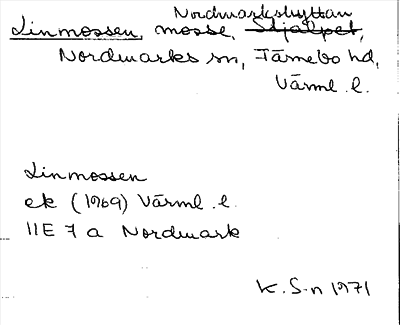 Nordmarkshyttan
Linmossen, mosse, Stjälpet,
Nordmarks sn, Färnebo hd,
Värml. l.
Linmossen
ek (1969) Värml. l.
11E 7a Nordmark
K. S-n 1971